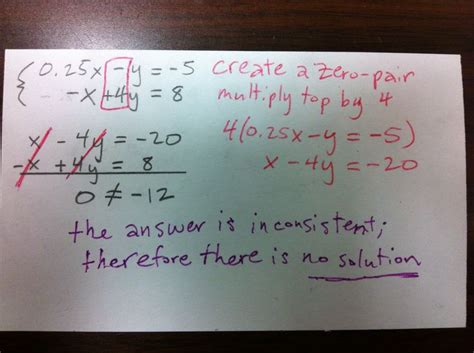 { 0.25x - y = -5
-x + 4y = 8
create a zero-pair
multiply top by 4
x - 4y = -20
-x + 4y = 8
0 ≠ -12
4(0.25x - y = -5)
x - 4y = -20
the answer is inconsistent;
therefore there is no solution